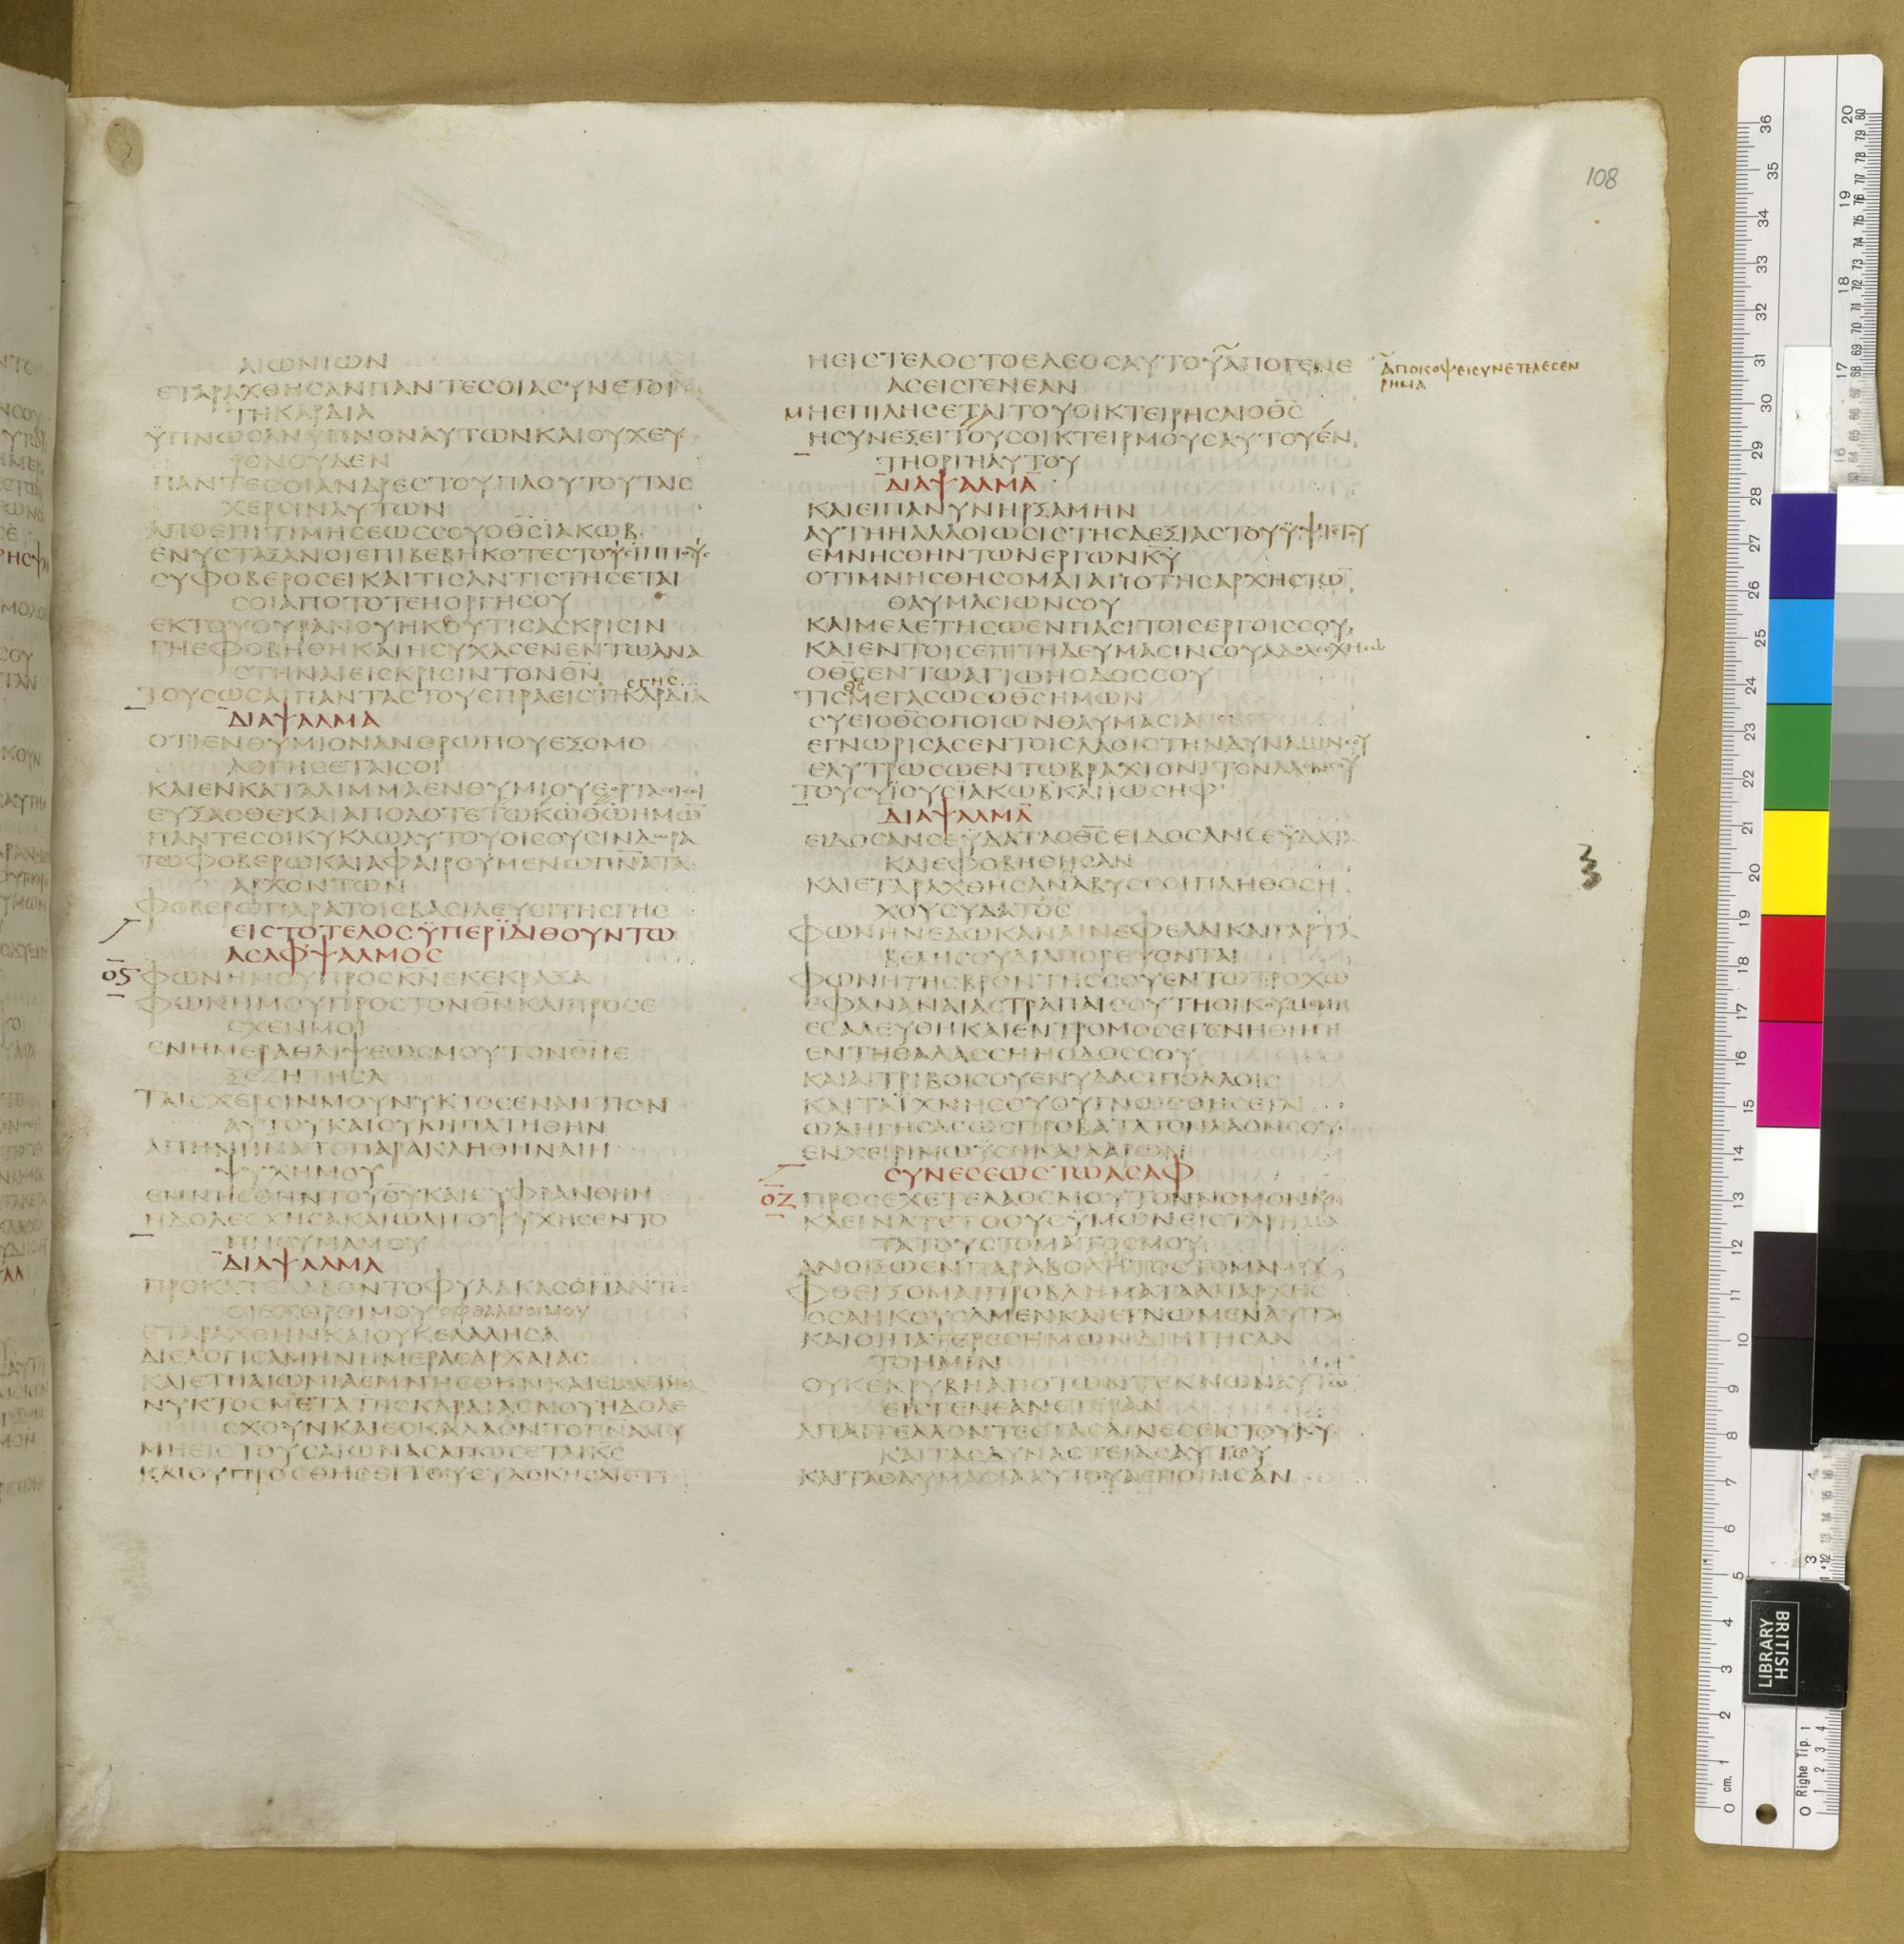 108
ΑΙΩΝΙΩΝ
ΕΤΑΡΑΧΘΗСΑΝΠΑΝΤΕСΟΙΑСΥΝΕΤΟΙ
ΤΗΚΑΡΔΙΑ
ΫΠΝΩСΑΝΥΠΝΟΝΑΥΤΩΝΚΑΙΟΥΧΕΥ
ΡΟΝΟΥΔΕΝ
ΠΑΝΤΕСΟΙΑΝΔΡΕСΤΟΥΠΛΟΥΤΟΥΤΑΙС
ΧΕΡСΙΝΑΥΤΩΝ
ΑΠΟΕΠΙΤΙΜΗСΕΩССΟΥΟΘ̅С̅ΪΑΚΩΒ
ΕΝΥСΤΑΞΑΝΟΙΕΠΙΒΕΒΗΚΟΤΕСΤΟΥСΙΠΠΟΥС
СΥΦΟΒΕΡΟСΕΙΚΑΙΤΙСΑΝΤΙСΤΗСΕΤΑΙ
СΟΙΑΠΟΤΟΤΕΗΟΡΓΗСΟΥ
ΕΚΤΟΥΟΥΡΑΝΟΥΗΚΟΥΤΙСΑСΚΡΙСΙΝ
ΓΗΕΦΟΒΗΘΗΚΑΙΗСΥΧΑСΕΝΕΝΤΩΑΝΑ
СΤΗΝΑΙΕΙСΚΡΙСΙΝΤΟΝΘ̅Ν̅
ΤΟΥСΩСΑΙΠΑΝΤΑСΤΟΥСΠΡΑΕΙСΤΗΚΑΡΔΙΑ
ΔΙΑΨΑΛΜΑ
ΟΤΙΕΝΘΥΜΙΟΝΑΝΘΡΩΠΟΥΕΞΟΜΟ
ΛΟΓΗСΕΤΑΙСΟΙ
ΚΑΙΕΝΚΑΤΑΛΙΜΜΑΕΝΘΥΜΙΟΥΕΟΡΤΑСΙСΟΙ
ΕΥΞΑСΘΕΚΑΙΑΠΟΔΟΤΕΤΩΚ̅Ω̅Θ̅Ω̅ΗΜΩ̅
ΠΑΝΤΕСΟΙΚΥΚΛΩΑΥΤΟΥΟΙСΟΥСΙΝΔΩΡΑ
ΤΩΦΟΒΕΡΩΚΑΙΑΦΑΙΡΟΥΜΕΝΩΠ̅Ν̅Α̅ΤΑ
ΑΡΧΟΝΤΩΝ
ΦΟΒΕΡΩΠΑΡΑΤΟΙСΒΑСΙΛΕΥСΙΤΗСΓΗС
ΕΙСΤΟΤΕΛΟСΫΠΕΡΪΔΙΘΟΥΝΤΩ
ΑСΑΦΨΑΛΜΟС
ΟϚ ΦΩΝΗΜΟΥΠΡΟСΚ̅Ν̅ΕΚΕΚΡΑΞΑ
ΦΩΝΗΜΟΥΠΡΟСΤΟΝΘ̅Ν̅ΚΑΙΠΡΟСΕ
СΧΕΝΜΟΙ
ΕΝΗΜΕΡΑΘΛΙΨΕΩСΜΟΥΤΟΝΘ̅Ν̅Ε
ΞΕΖΗΤΗСΑ
ΤΑΙСΧΕΡСΙΝΜΟΥΝΥΚΤΟСΕΝΑΝΤΙΟΝ
ΑΥΤΟΥΚΑΙΟΥΚΗΠΑΤΗΘΗΝ
ΑΠΗΝΗΝΑΤΟΠΑΡΑΚΛΗΘΗΝΑΙΗ
ΨΥΧΗΜΟΥ
ΕΜΝΗСΘΗΝΤΟΥΘ̅Υ̅ΚΑΙΕΥΦΡΑΝΘΗΝ
ΗΔΟΛΕСΧΗСΑΚΑΙΩΛΙΓΟΨΥΧΗСΕΝΤΟ
Π̅Ν̅Ε̅Υ̅Μ̅ΑΜΟΥ
ΔΙΑΨΑΛΜΑ
ΠΡΟΚΑΤΕΛΑΒΟΝΤΟΦΥΛΑΚΑСΟΙΠΑΝΤΕ
СΙΕΧΘΡΟΙΜΟΥ ΟΦΘΑΛΜΟΙΜΟΥ
ΕΤΑΡΑΧΘΗΝΚΑΙΟΥΚΕΛΑΛΗСΑ
ΔΙΕΛΟΓΙСΑΜΗΝΗΜΕΡΑСΑΡΧΑΙΑС
ΚΑΙΕΤΗΑΙΩΝΙΑΕΜΝΗСΘΗΝΚΑΙΕΜΕΛΕΤΗСΑ
ΝΥΚΤΟСΜΕΤΑΤΗСΚΑΡΔΙΑСΜΟΥΗΔΟΛΕ
СΧΟΥΝΚΑΙΕСΚΑΛΛΟΝΤΟΠ̅Ν̅Α̅ΜΟΥ
ΜΗΕΙСΤΟΥСΑΙΩΝΑСΑΠΩСΕΤΑΙΚ̅С̅
ΚΑΙΟΥΠΡΟСΘΗСΕΙΤΟΥΕΥΔΟΚΗСΑΙΕΤΙ
ΗΕΙСΤΕΛΟСΤΟΕΛΕΟСΑΥΤΟΥΑΠΟΓΕΝΕ
ΑΠΟΚΟΨΕΙСΥΝΕΤΕΛΕСΕΝ
ΡΗΜΑ
ΑСΕΙСΓΕΝΕΑΝ
ΜΗΕΠΙΛΗСΕΤΑΙΤΟΥΟΙΚΤΕΙΡΗСΑΙΟΘ̅С̅
ΗСΥΝΕΞΕΙΤΟΥСΟΙΚΤΕΙΡΜΟΥСΑΥΤΟΥΕΝ
ΤΗΟΡΓΗΑΥΤΟΥ
ΔΙΑΨΑΛΜΑ
ΚΑΙΕΙΠΑΝΥΝΗΡΞΑΜΗΝ
ΑΥΤΗΗΑΛΛΟΙΩСΙСΤΗСΔΕΞΙΑСΤΟΥΫΨΙСΤΟΥ
ΕΜΝΗСΘΗΝΤΩΝΕΡΓΩΝΚ̅Υ̅
ΟΤΙΜΝΗСΘΗСΟΜΑΙΑΠΟΤΗСΑΡΧΗСΤΩ̅
ΘΑΥΜΑСΙΩΝСΟΥ
ΚΑΙΜΕΛΕΤΗСΩΕΝΠΑСΙΤΟΙСΕΡΓΟΙССΟΥ
ΚΑΙΕΝΤΟΙСΕΠΙΤΗΔΕΥΜΑСΙΝСΟΥΑΔΟΛΕСΧΗСΩ
ΟΘ̅С̅ΕΝΤΩΑΓΙΩΗΟΔΟССΟΥ
ΤΙСΜΕΓΑСΩСΟΘ̅С̅ΗΜΩΝ
СΥΕΙΟΘ̅С̅ΟΠΟΙΩΝΘΑΥΜΑСΙΑ
ΕΓΝΩΡΙСΑСΕΝΤΟΙСΛΑΟΙСΤΗΝΔΥΝΑΜΙΝСΟΥ
ΕΛΥΤΡΩСΩΕΝΤΩΒΡΑΧΙΟΝΙΤΟΝΛΑΟΝСΟΥ
ΤΟΥСΥΪΟΥСΪΑΚΩΒΚΑΙΪΩСΗΦ
ΔΙΑΨΑΛΜΑ
ΕΙΔΟСΑΝСΕΫΔΑΤΑΟΘ̅С̅ΕΙΔΟСΑΝСΕΫΔΑΤΑ
ΚΑΙΕΦΟΒΗΘΗСΑΝ
ΚΑΙΕΤΑΡΑΧΘΗСΑΝΑΒΥССΟΙΠΛΗΘΟСΗ
ΧΟΥСΥΔΑΤΟС
ΦΩΝΗΝΕΔΩΚΑΝΑΙΝΕΦΕΛΑΙΚΑΙΓΑΡΤΑ
ΒΕΛΗСΟΥΔΙΑΠΟΡΕΥΟΝΤΑΙ
ΦΩΝΗΤΗСΒΡΟΝΤΗССΟΥΕΝΤΩΤΡΟΧΩ
ΕΦΑΝΑΝΑΙΑСΤΡΑΠΑΙСΟΥΤΗΟΙΚΟΥΜΕΝΗ
ΕСΑΛΕΥΘΗΚΑΙΕΝΤΡΟΜΟСΕΓΕΝΗΘΗΗΓΗ
ΕΝΤΗΘΑΛΑССΗΗΟΔΟССΟΥ
ΚΑΙΑΙΤΡΙΒΟΙСΟΥΕΝΥΔΑСΙΠΟΛΛΟΙС
ΚΑΙΤΑΪΧΝΗСΟΥΟΥΓΝΩСΘΗСΕΤΑΙ
ΩΔΗΓΗСΑСΩСΠΡΟΒΑΤΑΤΟΝΛΑΟΝСΟΥ
ΕΝΧΕΙΡΙΜΩΫСΗΚΑΙΑΑΡΩΝ
СΥΝΕСΕΩСΤΩΑСΑΦ
ΟΖ ΠΡΟСΕΧΕΤΕΛΑΟСΜΟΥΤΟΝΝΟΜΟΝΜΟΥ
ΚΛΕΙΝΑΤΕΤΟΟΥСΫΜΩΝΕΙСΤΑΡΗΜΑ
ΤΑΤΟΥСΤΟΜΑΤΟСΜΟΥ
ΑΝΟΙΞΩΕΝΠΑΡΑΒΟΛΗΤΟСΤΟΜΑΜΟΥ
ΦΘΕΓΞΟΜΑΙΠΡΟΒΛΗΜΑΤΑΑΠΑΡΧΗС
ΟСΑΗΚΟΥСΑΜΕΝΚΑΙΕΓΝΩΜΕΝΑΥΤΑ
ΚΑΙΟΙΠΑΤΕΡΕСΗΜΩΝΔΙΗΓΗСΑΝ
ΤΟΗΜΙΝ
ΟΥΚΕΚΡΥΒΗΑΠΟΤΩΝΤΕΚΝΩΝΑΥΤΩ̅
ΕΙСΓΕΝΕΑΝΕΤΕΡΑΝ
ΑΠΑΓΓΕΛΛΟΝΤΕСΤΑСΑΙΝΕСΕΙСΤΟΥΚ̅Υ̅
ΚΑΙΤΑСΔΥΝΑСΤΕΙΑСΑΥΤΟΥ
ΚΑΙΤΑΘΑΥΜΑСΙΑΑΥΤΟΥΑΕΠΟΙΗСΑΝ
BRITISH
LIBRARY